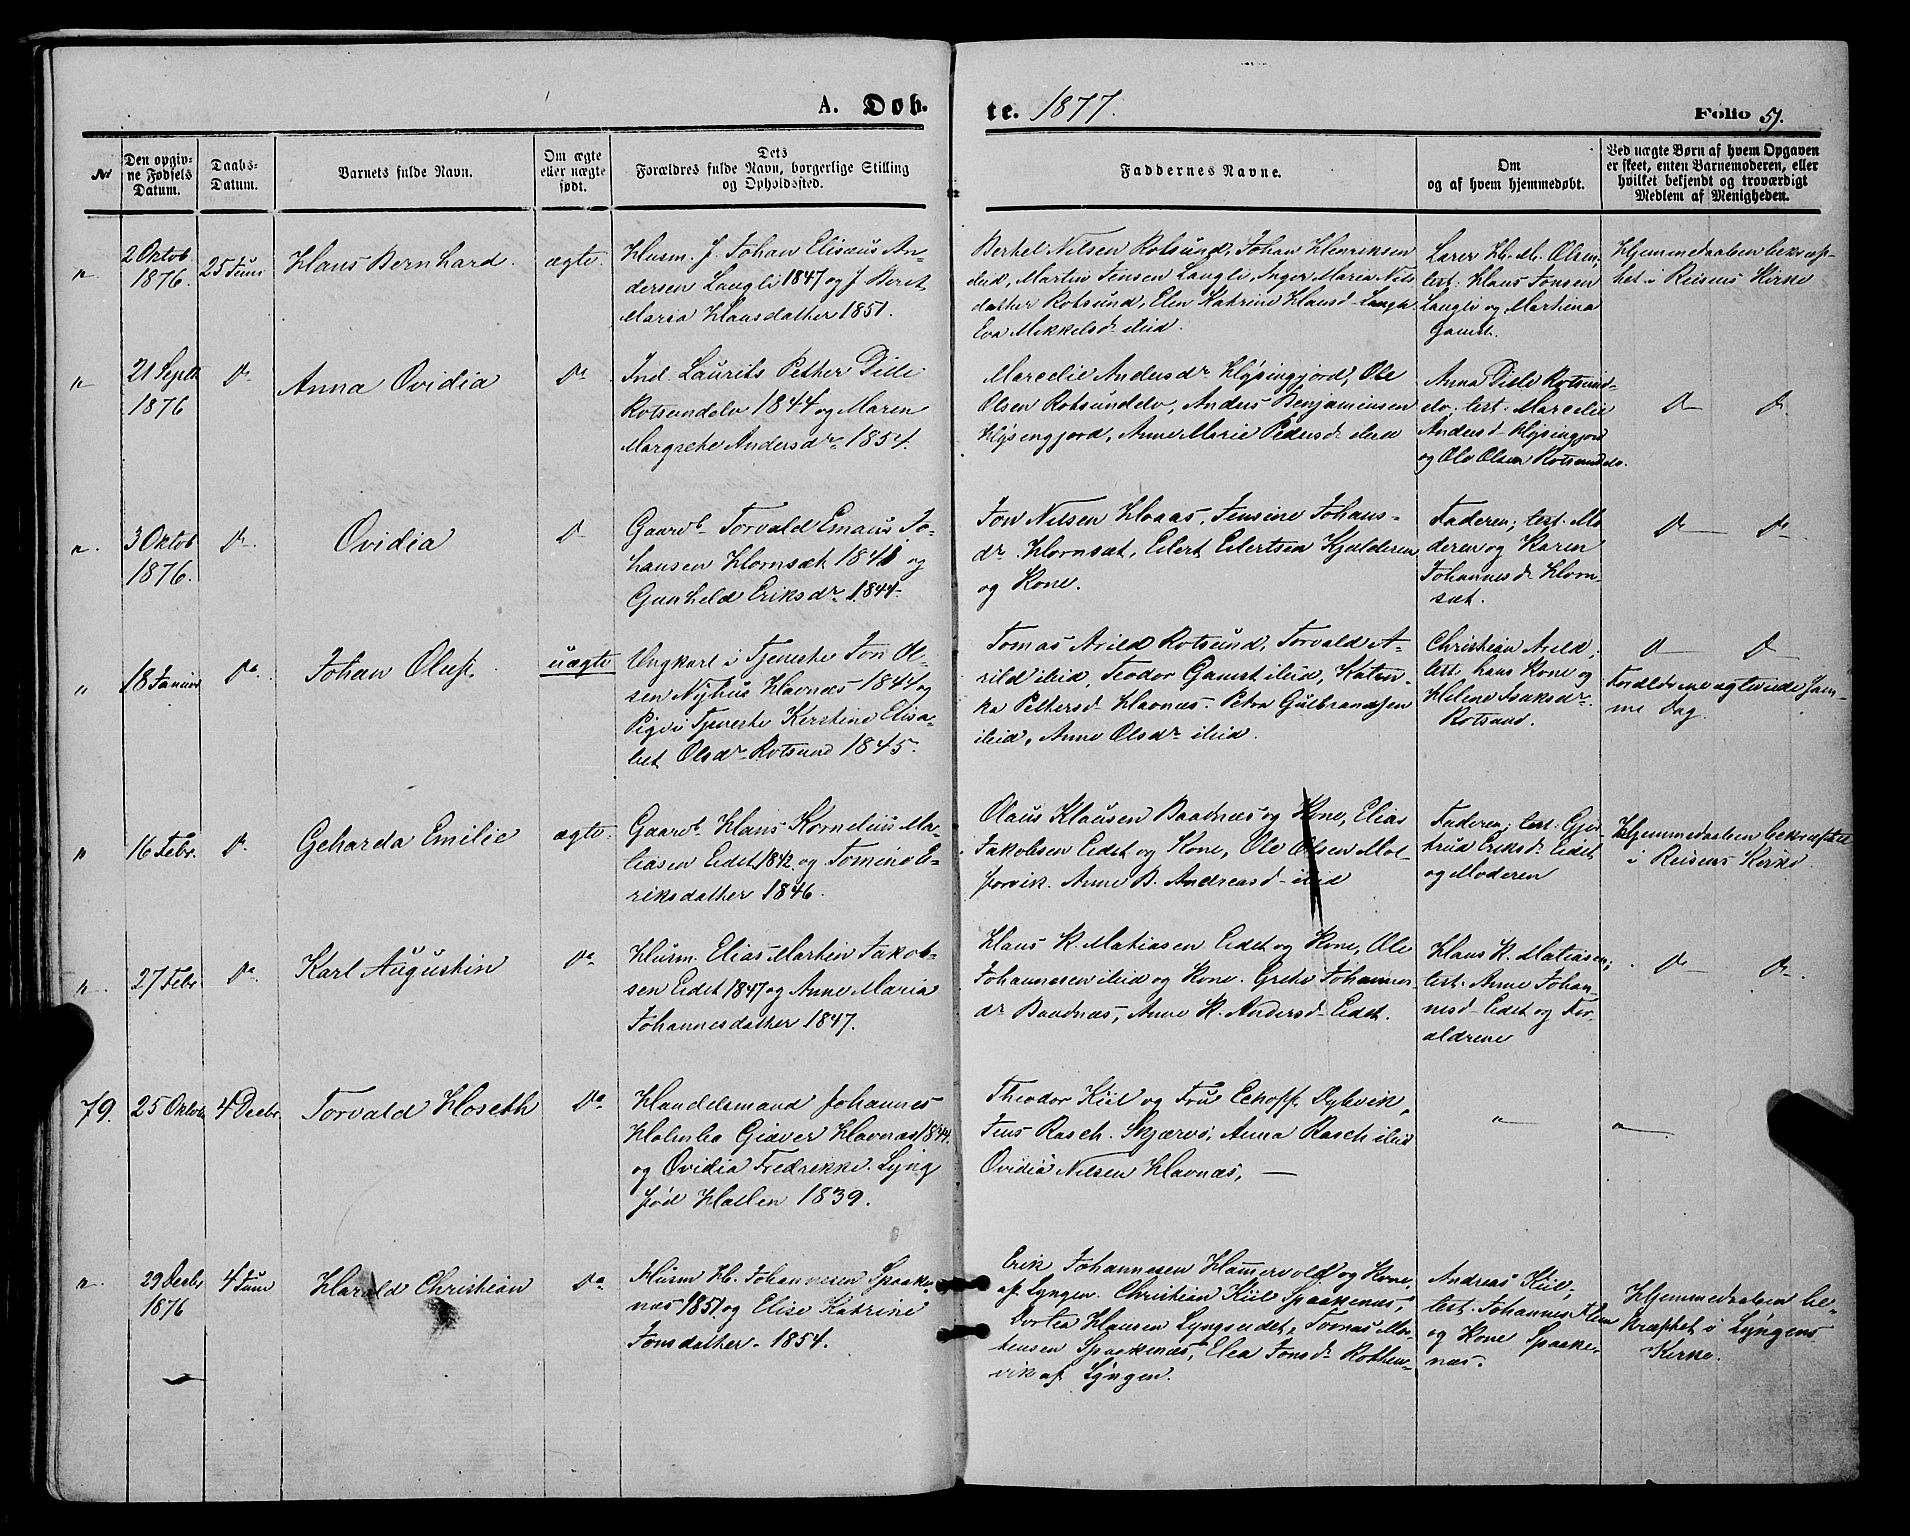 A. Døb-
te. 1877.
Folio 51.
No
Den opgiv-
ne Fødsels
Datum.
Daabs-
Datum.
Barnets fulde Navn.
Om ægte
eller uægte
født.
Dets
Forældres fulde Navn, borgerlige Stilling
og Opholdssted.
Faddernes Navne.
Om
og af hvem hjemmedøbt.
Ved uægte Børn af hvem Opgaven
er skeet, enten Barnemoderen, eller
hvilket bekjendt og troværdigt
Medlem af Menigheden.
"
2 Oktob.
1876.
25 Juni
Hans Bernhard.
ægte.
Husm. J. Johan Elisæus An-
dersen Langli 1847 og J. Beret
Maria Hansdatter 1851.
Berhel Nilsen Rotsund, Johan Henriksen
ibid, Martin Jensen Langli, Inger Maria Nils
datter Rotsund, Elen Katrine Hansd- Langli
Eva Mikkelsd ibid.
Lærer H. M. Olsen,
test. Hans Jonsen
Langli og Martina
Gamst.
Hjemmedaaben bekræf-
tet i Reisens Kirke
"
21 Septb
1876
Do
Anna Ovidia
Do
Ind. Laurits Petter Dille
Rotsundelv 1844 og Maren
Margrete Andersdr 1854.
Marcelie Andersdr Høisingjord, Ole
Olsen Rotsundelv, Anders Benjaminsen
Høisingjord, Anne Marie Pedersd ibid
Anna Dille Rotsund-
elv, test. Marcelie
Andersd Høisingjord
og Ole Olsen Rotsundelv.
Do Do
"
3 Oktob
1876.
Do
Ovidia
Do
Gaardb. Torvald Emaus Jo-
hansen Hornsæt 1841 og
Gunheld Eriksdr 1844.
Jon Nilsen Haas, Jensine Johans-
dr Hornsæt, Eilert Eilertsen Kjelderen
og Kone.
Faderen; test. Mo
deren og Karen
Johannesd Horn-
sæt.
Do Do
"
18 Januar
Do
Johan Oluf.
uægte
Ungkarl i Tjeneste Jon Ol-
sen Nyhus Havnæs 1844 og
Pige i Tjeneste Kerstine Elisa-
bet Olsdr Rotsund 1845.
Tomas Arild Rotsund, Torvald A-
rild ibid, Teodor Gamst ibid, Katin-
ka Pettersd Havnæs. Petra Gulbrandsen
ibid, Anne Olsdr ibid.
Christian Arild,
test. hans Kone og
Helene Isaksdr
Rotsund.
Do Do
Forældrene ægteviede sam-
me Dag.
"
16 Febr.
Do
Geharda Emilie
ægte.
Gaardb. Hans Kornelius Ma-
tiasen Eidet 1842 og Tomine E-
riksdatter 1846.
Olaus Klausen Baadnæs og Kone, Elias
Jakobsen Eidet og Kone, Ole Olsen Mol-
forvik. Anne B. Andreasd ibid
Faderen; test. Gjer-
trud Eriksd Eidet
og Moderen
Hjemmedaaben bekræftet
i Reisens Kirke.
"
27 Febr
Do
Karl Augustin
Do
Husm. Elias Martin Jakob-
sen Eidet 1847 og Anne Maria
Johannesdatter 1847.
Hans K. Matiasen Eidet og Kone, Ole
Johannesen ibid og Kone. Grete Johannes-
dr Baadnæs, Anne K. Andersd Eidet.
Hans K. Matiasen;
test. Anne Johan-
nesd Eidet og For-
ældrene
Do Do
79.
25 Oktob
4 Decbr.
Torvald Hoseth
Do
Handelsmand Johannes
Holmbo Giæver Havnæs 1844.
og Ovidia Fredrikke Lyng
fød Hatlen 1839.
Theodor Kiil og Fru Eckoff Dykvik,
Jens Rasch. Skjærvø, Anna Rasch ibid
Ovidia Nilsen Havnæs,
"
"
"
29 Decbr
1876
4 Juni
Harald Christian
Do
Husm H. Johannesen Spaake-
næs 1851 og Elise Katrine
Jonsdatter. 1854.
Erik Johannesen Hamervold og Kone,
af Lyngen. Christian Kiil Spaakenæs,
Dortea Hansen Lyngseidet, Tomas Mor-
tensen Spaakenæs, Elea Jonsdr Rotten-
vik af Lyngen.
Andreas Kiil,
test. Johannes
og Kone Spaake-
næs.
Hjemmedaaben be-
kræftet i Lyngens
Kirke.